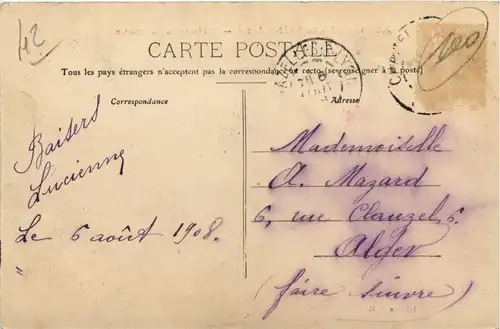 42
100
CARTE POSTALE
Tous les pays étrangers n'acceptent pas la correspondance au recto (se renseigner à la poste)
Correspondance
Adresse
Baisers
Lucienne
Le 6 août 1908.
"
Mademoiselle
A. Mazard
6, rue Clauzel, 6.
Alger
(faire suivre)